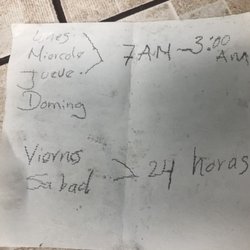 Lunes
Miercole 7AM - 3:00
Jueve AM
Doming
Viernes
Sabad 24 horas